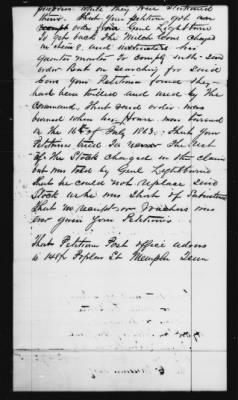 pasture while they were slaughtered
them. That your petitioner got an
order from Genl Lightburn
to get back the Milch Cows charged
in claim & and instructed his
Quarter master to comply with said
order But on searching for said
Cows your Petitioner found they
have been killed and used by the
Command. That said order was
burned when her House was burned
on the 16th of July 1863. That your
Petitioner tried to recover the rest
of the Stock charged in this claim
but was told by Genl Lightburn
that he could not replace said
Stock as he was short of Subsistence
that no receipts or Vouchers was
ever given your Petitioner.
That Petitioner Post office address
is 145½ Poplar St Memphis Tenn